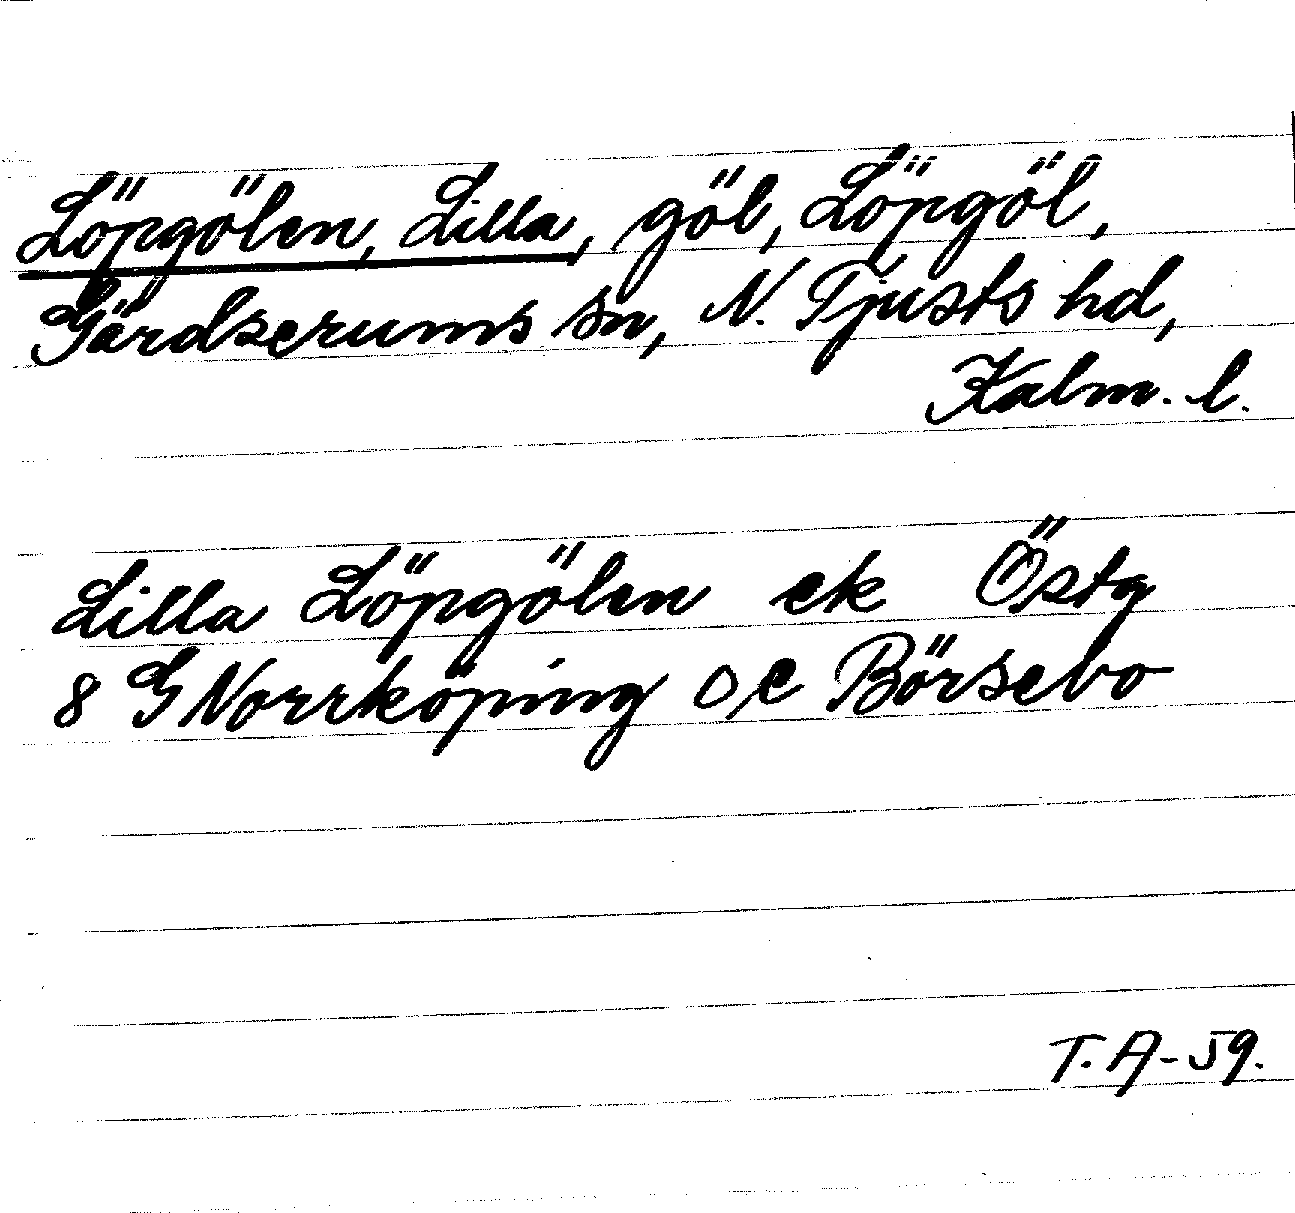 Löpgölen, Lilla, göl, Löpgöl,
Gärdserums sn, N. Tjusts hd,
Kalm. l.
Lilla Löpgölen ek Östg
8 G Norrköping o, e Börsebo
T. A-59.